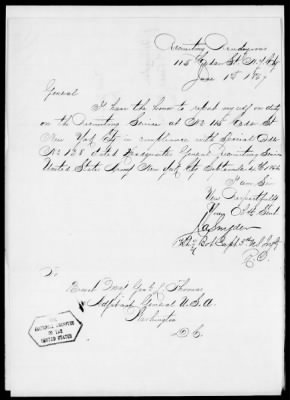 Recruiting Rendezvous
115 Cedar St. N.Y. City
June 1st 1867
General
I have the honor to report myself on duty
on the Recruiting Service at No 115 Cedar St
New York City in compliance with Special Order
No 128 dated Headquarters General Recruiting Service
United States Army New York City
I am Sir
Very Respectfully
Your Obdt Servt
J A Snyder
Bvt Capt 3rd U.S. Infty
R.O.
To
Brevet Majr Genl L Thomas
Adjutant General U.S.A.
Washington
D.C.
THE
NATIONAL ARCHIVES
OF THE
UNITED STATES